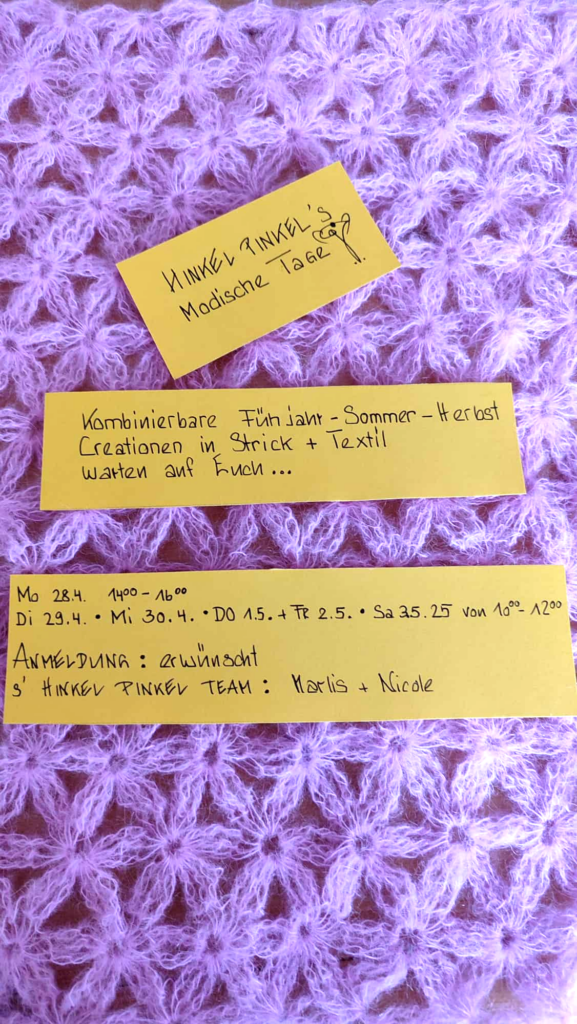 HINKEL PINKEL'S
Modische TAGE
Kombinierbare Fühjahr - Sommer - Herbst
Creationen in Strick + Textil
warten auf Euch...
Mo 28.4. 14⁰⁰ - 16⁰⁰
Di 29.4. • Mi 30.4. • DO 1.5. + Fr 2.5. • Sa 3.5.25 von 10⁰⁰ - 12⁰⁰
ANMELDUNG : erwünscht
s' HINKEL PINKEL TEAM : Marlis + Nicole